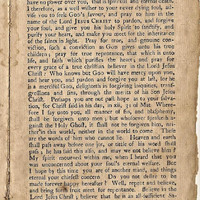 have no power over you, that is spiritual and eternal death;
therefore, as a well wisher to your never dying soul, ad-
vise you to seek God's favour, and to pray to him in the
name of the Lord JESUS CHRIST to pardon, and forgive
your soul, and give you his holy Spirit to sanctify, and
purify your heart, and make you meet for the inheritance
of the saints in light. Pray for true, and genuine con-
viction, such a conviction as God gives unto his true
children; pray for true repentance, that which is unto
life, and faith which purifies the heart; and pray for
every grace of a true christian believer in the Lord Jesus
Christ: Who knows but God will have mercy upon you,
and hear you, and pardon and forgive you at last, for he
is a merciful God, delights in forgiving iniquities, trans-
gressions and sins, through the merits of his son Jesus
Christ. Perhaps you are not past hope as to your salva-
tion, for Christ said in his day, it is, 31 of Mat. Where-
fore I say unto you, all manner of sin, and blasphemy
shall be forgiven unto men; but whosoever speaketh a-
gainst the Holy Ghost, it shall not be forgiven him, nei-
ther in this world, neither in the world to come. There
are the words of him who cannot lie. Heaven and earth
shall pass away before one jot, or tittle of his word shall
fail; he has said this, and shall we not believe him?
My Spirit mourned within me, when I heard that you
was unconcerned about your soul's eternal welfare. But
I hope by this time you are another man, and things
eternal your chiefest concern. Do you not desire to be
made forever happy hereafter? Well, repent and believe,
and bring fruits meet for repentance. Believe in the
Lord Jesus Christ, believe that he is an all-sufficient Sa-